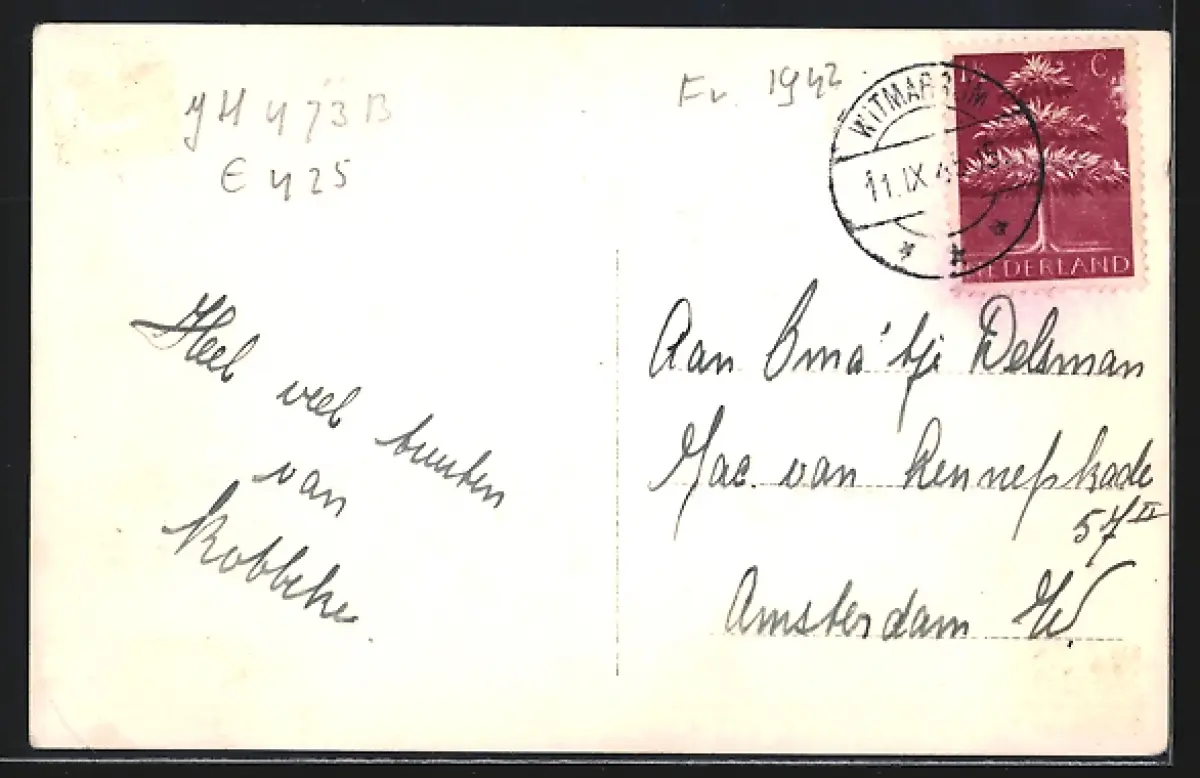 JH 473B
E 425
Fr. 1942
WITMARSUM
11.IX 43.15
1½ C
NEDERLAND
Heel veel
van
Robbeke
Aan Oma'tje Delsman
Jac. van Lennepkade
57 II
Amsterdam W.